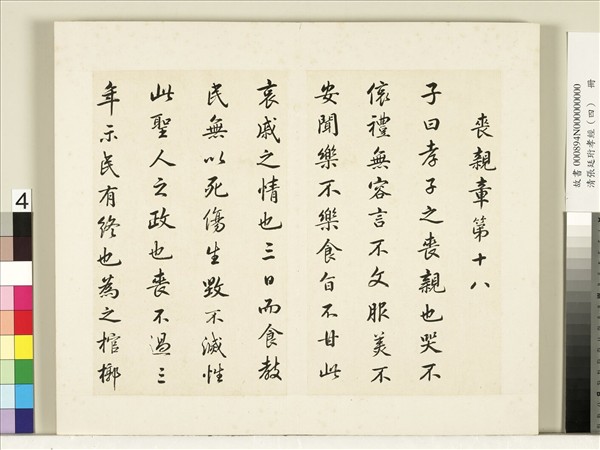 喪親章第十八
子曰孝子之喪親也哭不
偯禮無容言不文服美不
安聞樂不樂食旨不甘此
哀戚之情也三日而食教
民無以死傷生毀不滅性
此聖人之政也喪不過三
年示民有終也為之棺槨
故書 000894N000000000
清張廷珩孝經(四) 冊
4